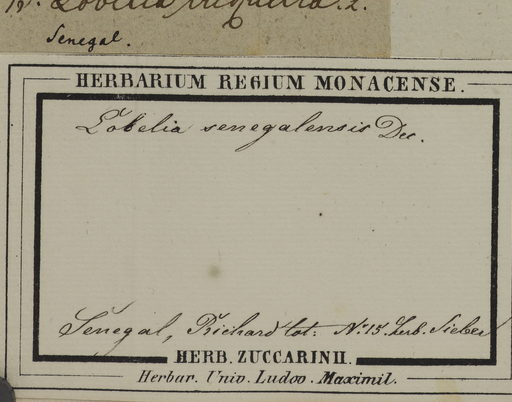 15. Lobelia
Senegal.
HERBARIUM REGIUM MONACENSE.
Lobelia senegalensis Dec.
Senegal, Richard tot: No. 15. herb. Sieber
HERB. ZUCCARINII.
Herbar. Univ. Ludov. Maximil.